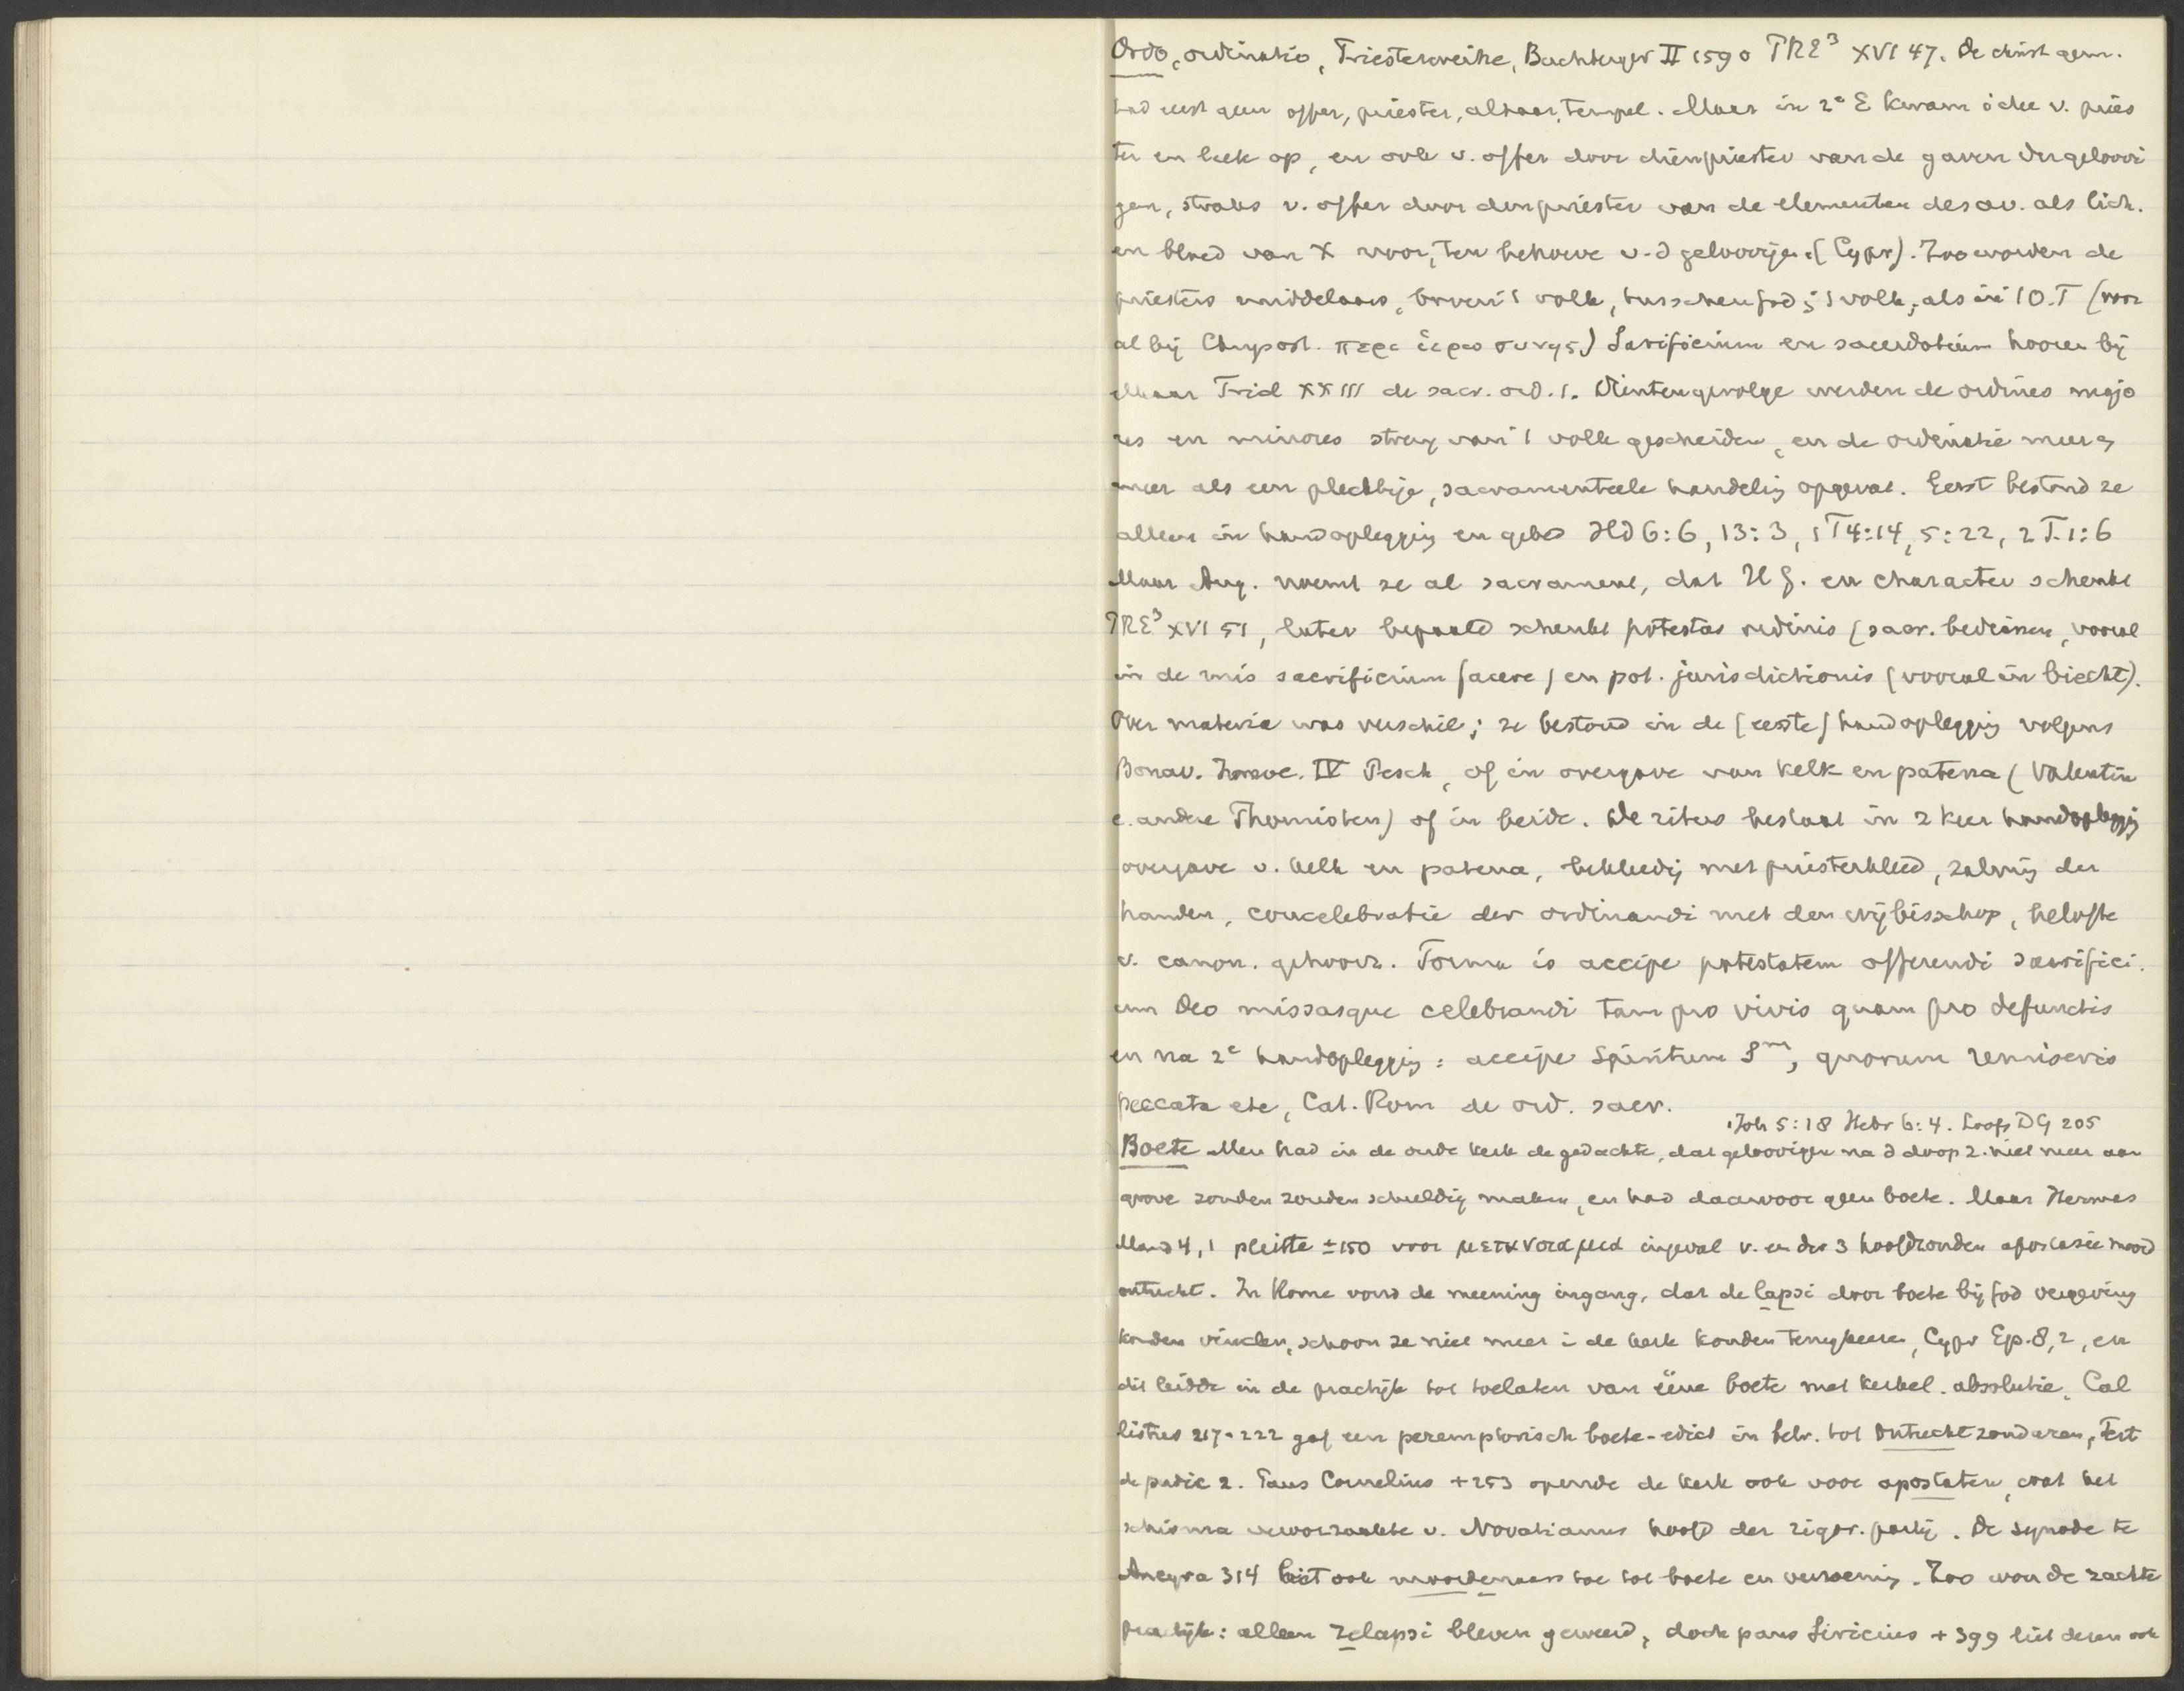 Ordo, ordinatio, Priesterweihe, Buchberger II 1590 PRE³ XVI 47. De christ gem.
had eerst geen offer, priester, altaar, tempel. Maar in 2e E kwam idee v. pries
ter en leek op, en ook v. offer door dien priester van de gaven der geloovi
gen, straks v. offer door den priester van de elementen des av. als lich.
en bloed van X voor, ten behoeve v. d geloovigen (Cypr). Zoo worden de
priesters middelaars, boven 't volk, tusschen God en 't volk, als in 't O.T (voor
al bij Chrysost. περι ἱερωσυνης) Sacrificium en sacerdotium hooren bij
elkaar Trid XXIII de sacr. ord. 1. Dientengevolge werden de ordines majo
res en minores streng van 't volk gescheiden, en de ordinatie meer en
meer als een plechtige, sacramenteele handeling opgevat. Eerst bestond ze
alleen in handoplegging en gebed Hd 6:6, 13:3, 1 T 4:14, 5:22, 2 T. 1:6
Maar Aug. noemt ze al sacrament, dat H G. en character schenkt
PRE³ XVI 51, later bepaald schenkt potestas ordinis (sacr. bedienen, vooral
in de mis sacrificium facere) en pot. jurisdictionis (vooral in biecht).
Over materia was verschil; ze bestond in de (eerste) handoplegging volgens
Bonav. IV Pesch, of in overgave van kelk en patena (Valentin
e. andere Thomisten) of in beide. De ritus bestaat in 2 keer handoplegging
overgave v. kelk en patena, bekleeding met priesterkleed, zalving der
handen, concelebratie der ordinandi met den wijbisschop, belofte
v. canon. gehoorz. Forma is accipe potestatem offerendi sacrifici.
um Deo missasque celebrandi tam pro vivis quam pro defunctis
en na 2e handoplegging: accipe Spiritum Sm, quorum remiseris
peccata etc, Cat. Rom de ord. sacr.
1 Joh 5:18 Hebr 6:4. Loofs DG 205
Boete Men had in de oude kerk de gedachte, dat geloovigen na d doop z. niet meer aan
grove zonden zouden schuldig maken, en had daarvoor geen boete. Maar Hermas
Mand 4,1 pleitte ±150 voor μετανοια ingeval v. een der 3 hoofdzonden apostasie moord
ontucht. In Rome vond de meening ingang, dat de lapsi door boete bij God vergeving
konden vinden, schoon ze niet meer i de kerk konden terugkeeren, Cypr Ep. 8,2, en
dit leidde in de practijk tot toelaten van ééne boete met kerkel. absolutie. Cal
listus 217-222 gaf een peremptorisch boete-edict in betr. tot ontucht zondaren, Tert
de pudic 2. Paus Cornelius +253 opende de kerk ook voor apostaten, wat het
schisma veroorzaakte v. Novatianus hoofd der rigor. partij. De synode te
Ancyra 314 liet ook moordenaars toe tot boete en verzoening. Zoo won de zachte
practijk: alleen relapsi bleven geweerd, doch paus Siricius +399 liet dezen ook